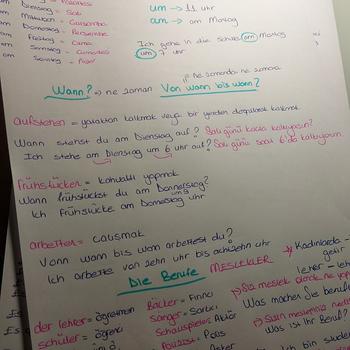 Dienstag = Salı
Mittwoch = Çarşamba
Donnerstag = Perşembe
Freitag = Cuma
Samstag = Cumartesi
Sonntag = Pazar
um → 11 uhr
am → am Montag
Ich gehe in die Schule am Montag
um 7 uhr
Wann? → ne zaman
Von wann bis wann?
ne zamandan ne zamana
aufstehen = yataktan kalkmak veya bir yerden doğrularak kalkmak
Wann stehst du am Dienstag auf? Salı günü kaçta kalkıyorsun?
Ich stehe am Dienstag um 6 uhr auf? Salı günü saat 6'da kalkıyorum
frühstücken = kahvaltı yapmak
Wann frühstückst du am Donnerstag?
Ich frühstücke am Donnerstag um 9 uhr
arbeiten = çalışmak
Vonn wann bis wann arbeitest du?
Ich arbeite von zehn uhr bis achtzehn uhr
Die Berufe MESLEKLER
der lehrer = öğretmen
schüler = öğrenci
Bäcker = Fırıncı
Sänger = Şarkıcı
Schauspieler = Aktör
Polizist = Polis
Kadınlarda -in
gelir
lehrer - leh
Was machen die berufe
Was ist Ihr Beruf?
Ich bin studen